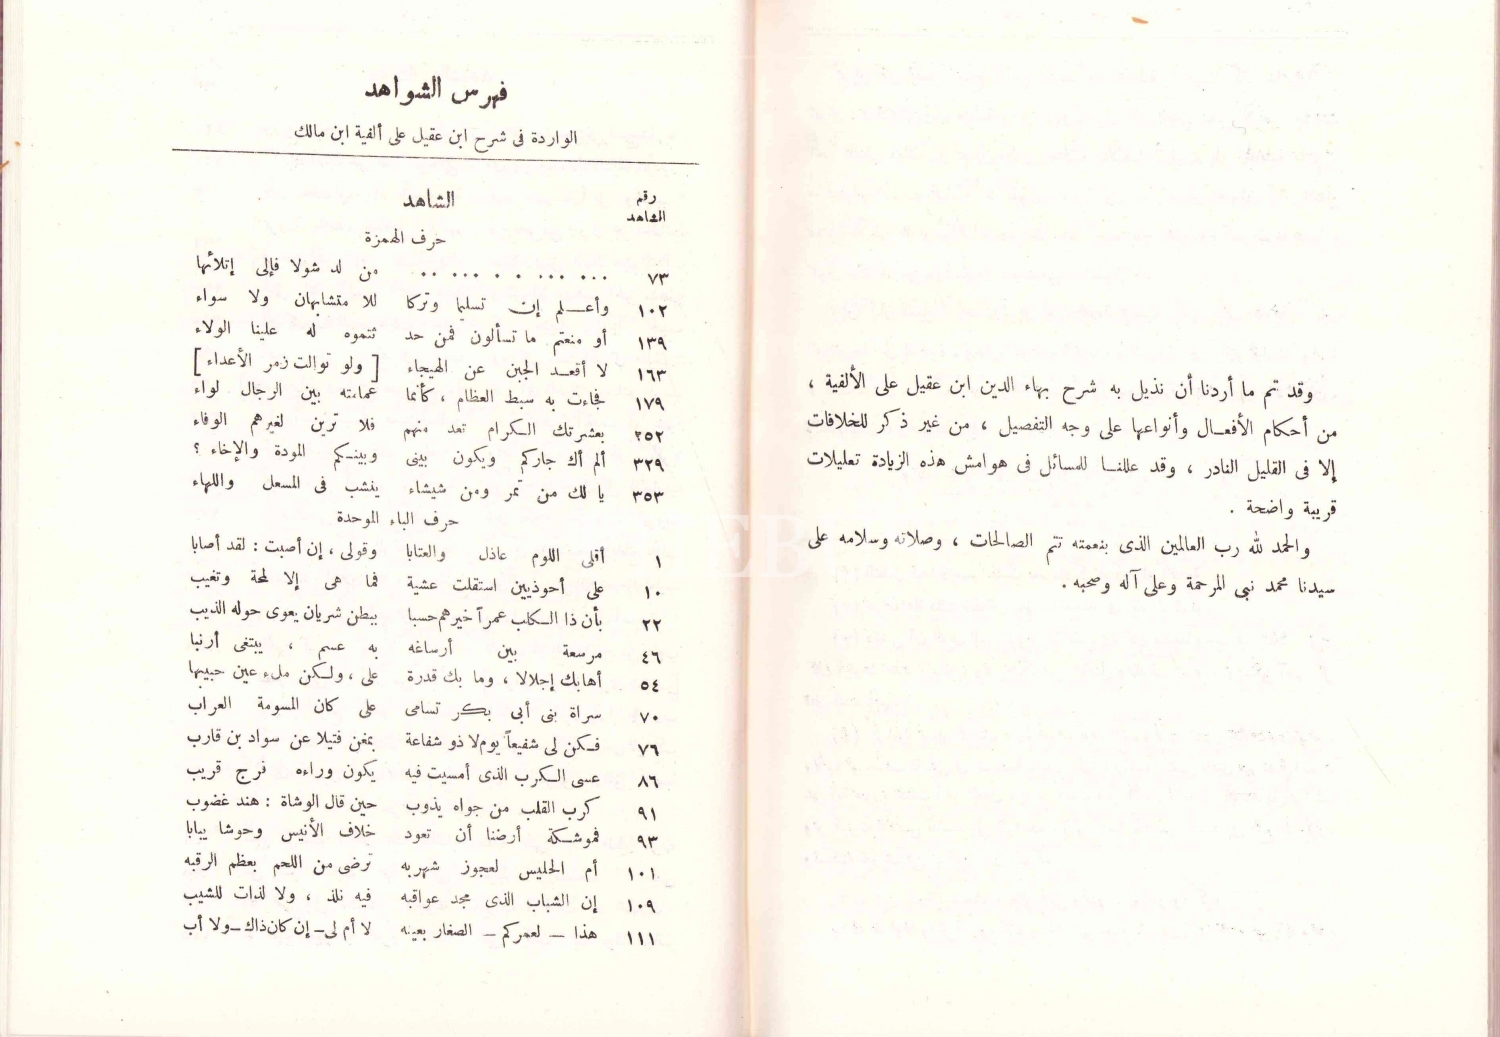 وقد تم ما أردنا أن نذيل به شرح بهاء الدين ابن عقيل على الألفية ،
من أحكام الأفعـال وأنواعها على وجه التفصيل ، من غير ذكر للخلافات
إلا فى القليل النادر ، وقد عللنـا للمسائل فى هوامش هذه الزيادة تعليلات
قريبة واضحة .
والحمد لله رب العالمين الذى بنعمته تتم الصالحات ، وصلاته وسلامه على
سيدنا محمد نبى المرحمة وعلى آله وصحبه .
فهرس الشواهد
الواردة فى شرح ابن عقيل على ألفية ابن مالك
رقم الشاهد الشاهد
حرف الهمزة
٧٣ ... ... ... . . ... .. من لد شولا فإلى إتلائها
١٠٢ وأعـــلم إن تسليما وتركا للا متشابهان ولا سواء
١٣٩ أو منعتم ما تسألون فمن حد ثتموه له علينا الولاء
١٦٣ لا أقعـد الجبن عن الهيجاء [ ولو توالت زمر الأعداء ]
١٧٩ فجاءت به سبط العظام ، كأنما عمامته بين الرجال لواء
٢٥٢ بعشرتك الـكرام تعد منهم فلا ترين لغيرهم الوفاء
٣٢٩ ألم أك جاركم ويكون بينى وبينـكم المودة والإخاء ؟
٣٥٣ يا لك من تمر ومن شيشاء ينشب فى المسعل واللهاء
حرف الباء الموحدة
١ أقلى اللوم عاذل والعتابا وقولى ، إن أصبت : لقد أصابا
١٠ على أحوذيين استقلت عشية فما هى إلا لمحة وتغيب
٢٢ بأن ذا الـكلب عمرا خيرهم حسبا ببطن شريان يعوى حوله الذيب
٤٦ مرسعة بين أرساغه به عسم ، يبتغى أرنبا
٥٤ أهابك إجلالا ، وما بك قدرة على ، ولـكن ملء عين حبيبها
٧٠ سراة بنى أبى بكر تسامى على كان المسومة العراب
٧٦ فـكن لى شفيعاً يوم لا ذو شفاعة بمغن فتيلا عن سواد بن قارب
٨٦ عسى الـكرب الذى أمسيت فيه يكون وراءه فرج قريب
٩١ كرب القلب من جواه يذوب حين قال الوشاة : هند غضوب
٩٣ فموشـكة أرضنا أن تعود خلاف الأنيس وحوشا يبابا
١٠١ أم الحليس لعجوز شهربه ترضى من اللحم بعظم الرقبه
١٠٩ إن الشباب الذى مجد عواقبه فيه نلذ ، ولا لذات للشيب
١١١ هذا – لعمركم – الصغار بعينه لا أم لى – إن كان ذاك – ولا أب